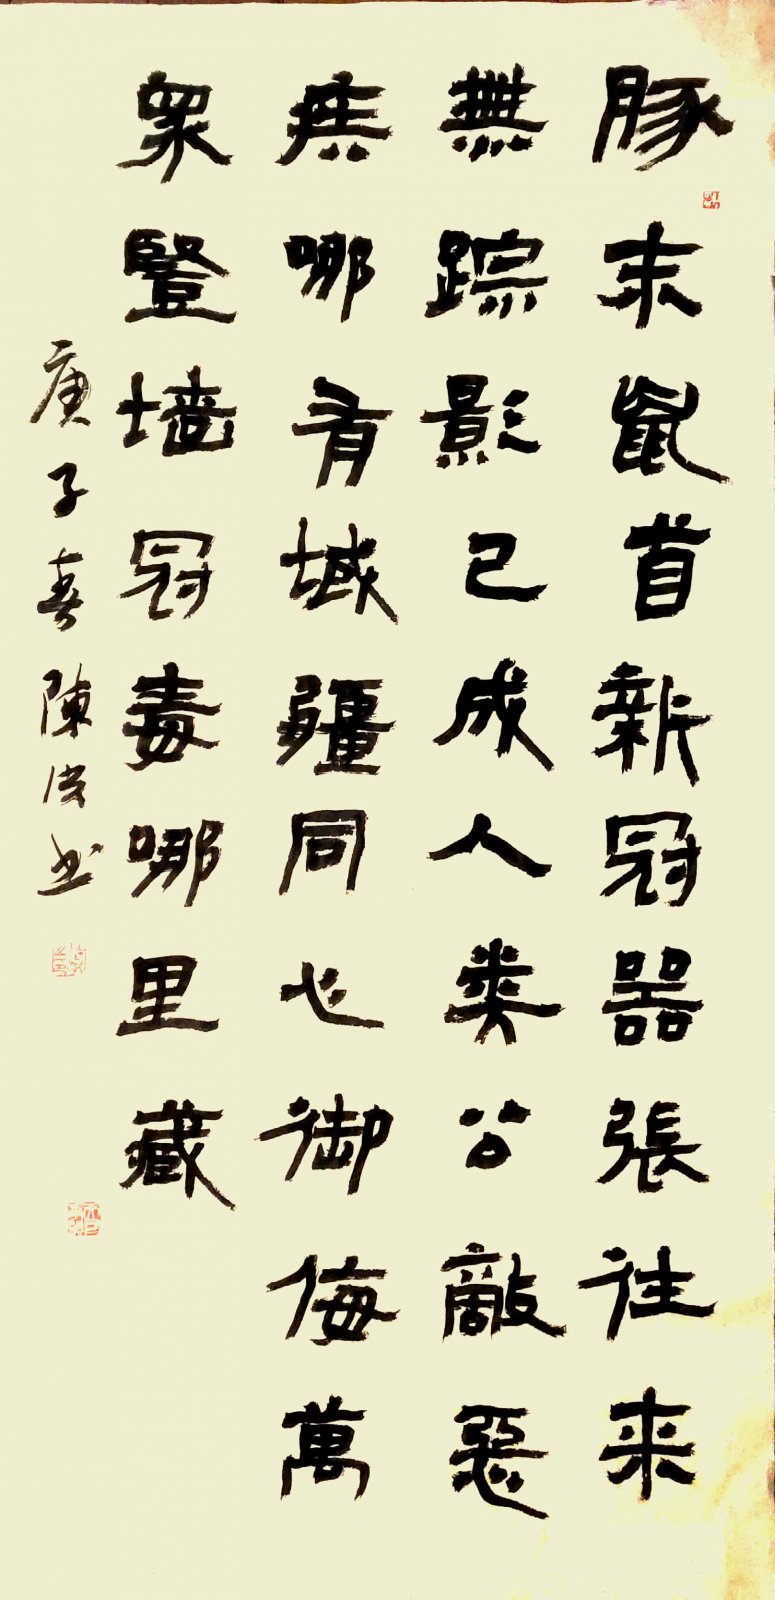 豚末鼠首新冠嚣張往来
無踪影已成人类公敵惡
疾哪有域疆同心御侮萬
眾豎墙冠毒哪里藏
庚子春陳俊书